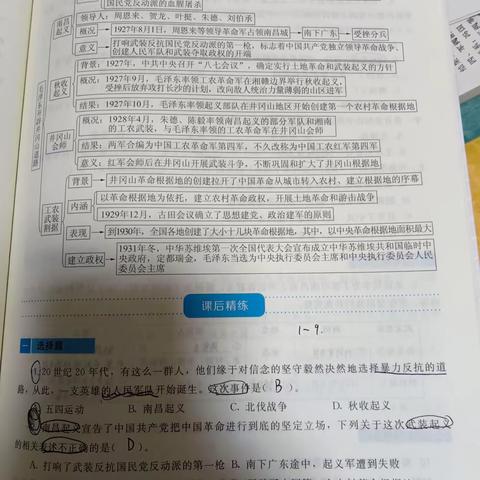 国民党反动派的血腥屠杀
南昌起义
领导人：周恩来、贺龙、叶挺、朱德、刘伯承
概况
1927年8月1日，周恩来等领导革命军占领南昌城
南下广东
受挫分兵
意义
打响武装反抗国民党反动派的第一枪，标志着中国共产党独立领导革命战争、
创建人民军队和武装夺取政权的开端
秋收起义
背景：1927年，中共中央召开“八七会议”，确定实行土地革命和武装起义的方针
概况：1927年9月，毛泽东率领工农革命军在湘赣边界举行秋收起义，
受挫后放弃攻打长沙的计划，改向敌人统治力量薄弱的山区进军
结果：1927年10月，毛泽东率领起义部队在井冈山地区开始创建第一个农村革命根据地
毛泽东开辟井冈山道路
井冈山会师
概况：1928年4月，朱德、陈毅率领南昌起义的部分军队和湘南
的工农武装，与毛泽东率领的工农革命军在井冈山会师
结果：两军会编为中国工农革命军第四军，不久改称为中国工农红军第四军
意义：红军会师后在井冈山开展武装斗争，不断巩固和扩大了井冈山根据地
工农武装割据
背景
井冈山革命根据地的创建拉开了中国革命从城市转入农村、建立根据地的序幕
内涵
以革命根据地为依托，建立农村革命政权，开展土地革命和游击战争
1929年12月，古田会议确立了思想建党、政治建军的原则
表现
到1930年，全国各地创建了大小十几块革命根据地，其中，以中央革命根据地面积最大
建立政权
1931年冬，中华苏维埃第一次全国代表大会宣布成立中华苏维埃共和国临时中
央政府，定都瑞金，毛泽东当选为中央执行委员会主席和中央执行委员会人民
委员会主席
课后精练
1~9.
一 选择题
1.20世纪20年代，有这么一群人，他们缘于对信念的坚守毅然决然地选择暴力反抗的道
路，从此，一支英雄的人民军队开始诞生。这次事件是( B )。
A. 五四运动 B. 南昌起义 C. 北伐战争 D. 秋收起义
南昌起义宣告了中国共产党把中国革命进行到底的坚定立场，下列关于这次武装起义
的相关表述不正确的是( D )。
A. 打响了武装反抗国民党反动派的第一枪 B. 南下广东途中，起义军遭到失败